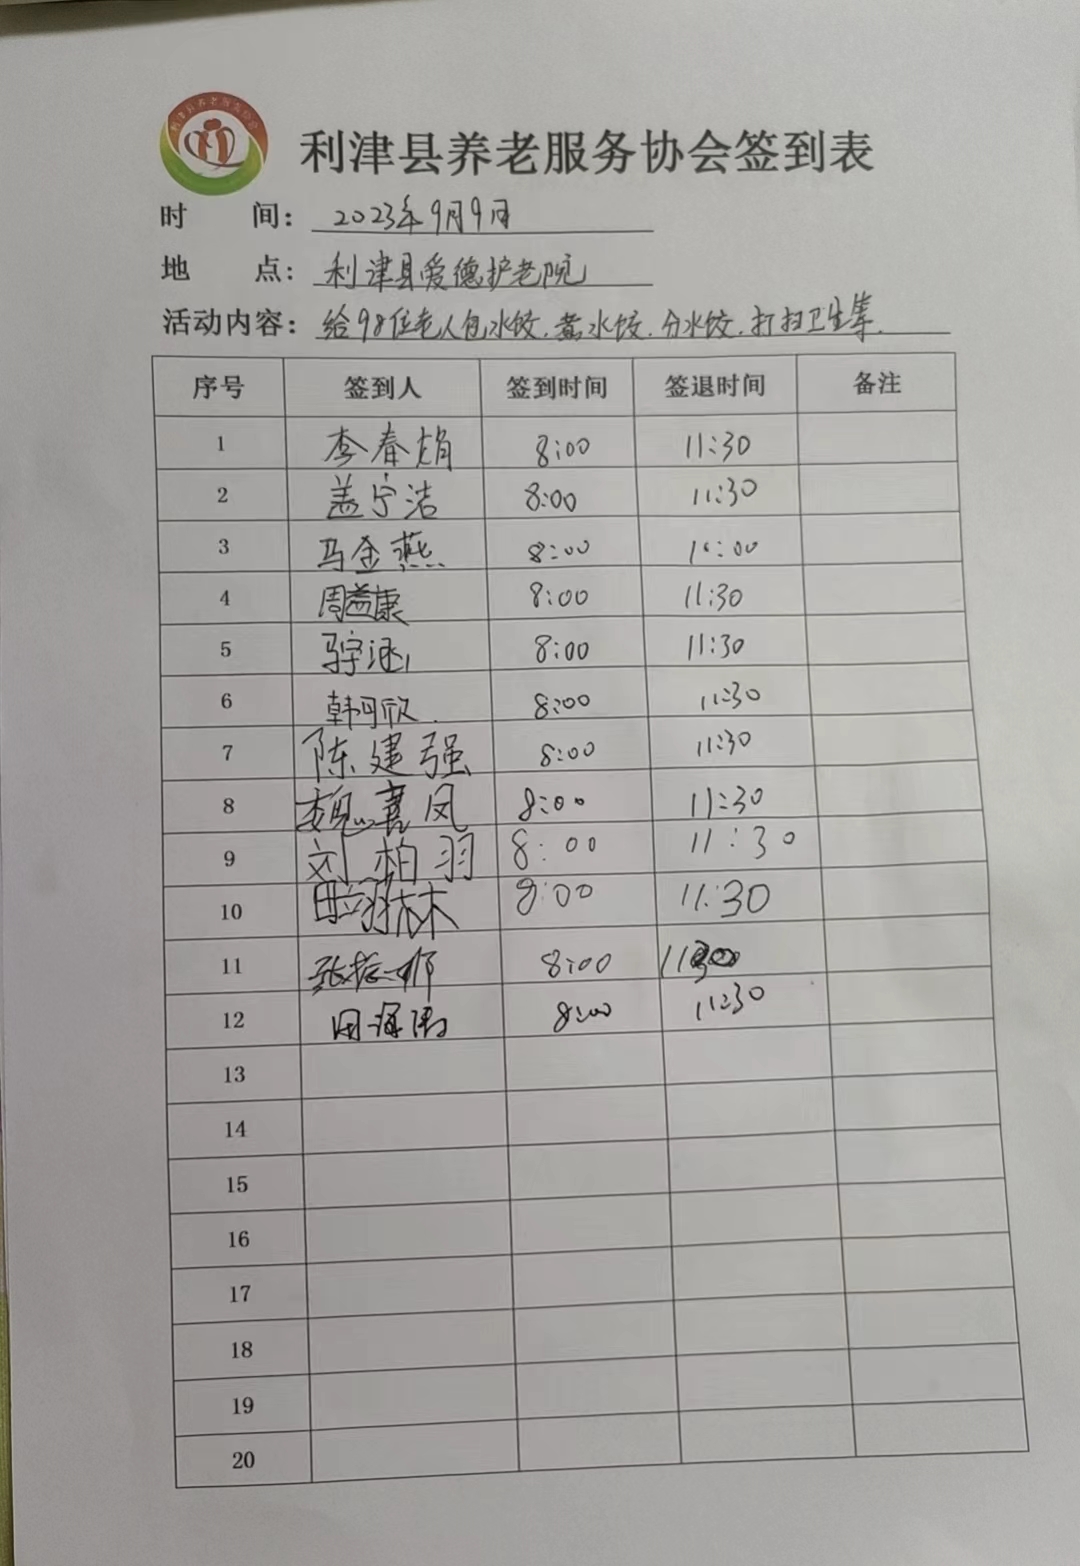 利津县养老服务协会
利津县养老服务协会签到表
时 间: 2023年9月9日
地 点: 利津县爱德护老院
活动内容: 给98位老人包水饺.煮水饺.分水饺.打扫卫生等.
序号 签到人 签到时间 签退时间 备注
1 李春娟 8:00 11:30
2 盖宁洁 8:00 11:30
3 马金燕 8:00 10:00
4 周益康 8:00 11:30
5 8:00 11:30
6 韩可欣 8:00 11:30
7 陈建强 8:00 11:30
8 魏襄凤 8:00 11:30
9 刘柏羽 8:00 11:30
10 8:00 11:30
11 张振娜 8:00
12 周海涛 8:00 11:30
13
14
15
16
17
18
19
20